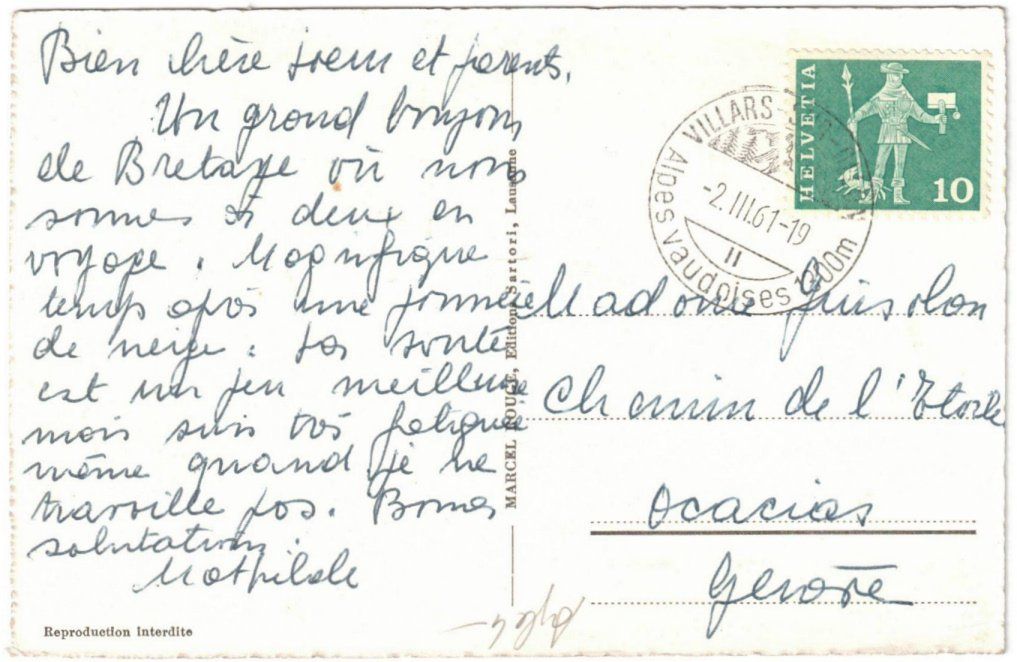 Bien chère soeur et parents,
Un grand bonjour
de Bretaye où nous
sommes à deux en
voyage. Magnifique
temps après une journée
de neige. La santé
est un peu meilleure
mais suis très fatiguée
même quand je ne
travaille pas. Bonnes
salutations.
Mathilde
Reproduction interdite
MARCEL ROUGE, Edition Sartori, Lausanne
HELVETIA
10
VILLARS-
-2.III.61-19
II
Alpes vaudoises 1200m
Madame
Chemin de l'Etoile
Acacias
Genève